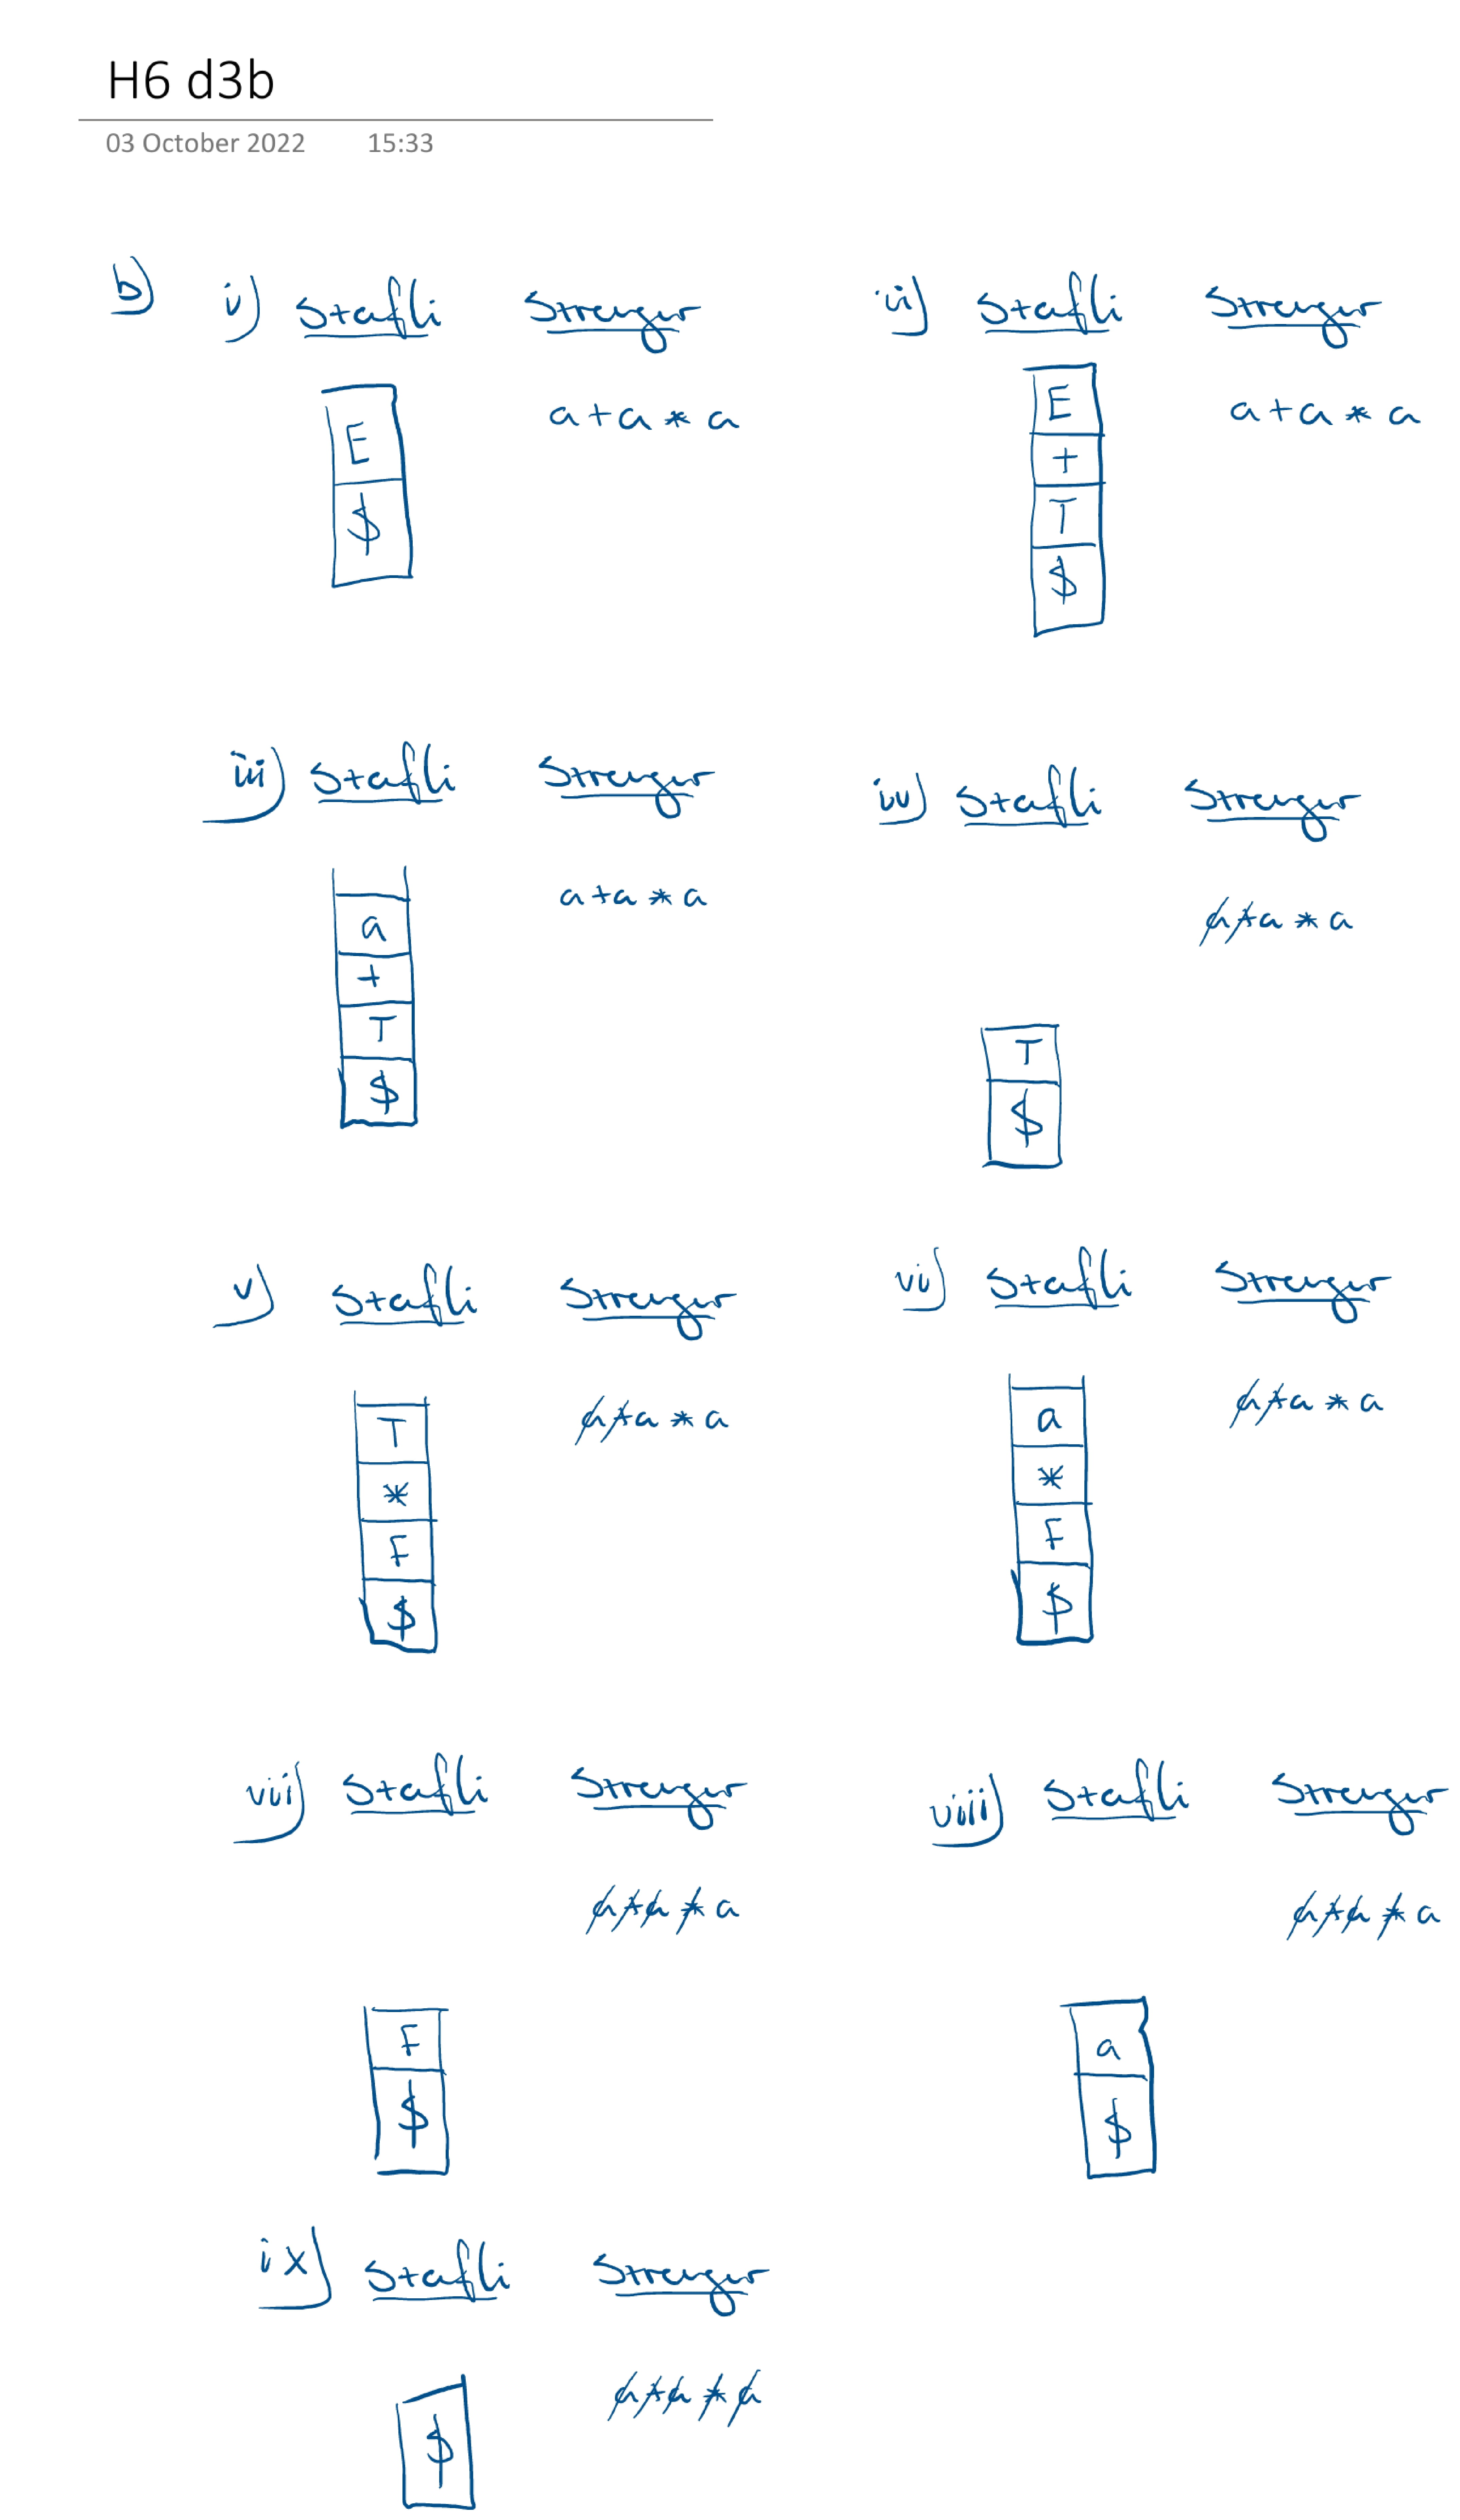 H6 d3b
03 October 2022 15:33
b) i) Stafli Strengur ii) Stafli Strengur
a+a*a a+a*a
E
$
E
+
T
$
iii) Stafli Strengur iv) Stafli Strengur
a+a*a a+a*a
a
+
T
$
T
$
v) Stafli Strengur vi) Stafli Strengur
a+a*a a+a*a
T
*
F
$
a
*
F
$
vii) Stafli Strengur viii) Stafli Strengur
a+a*a a+a*a
F
$
a
$
ix) Stafli Strengur
a+a*a
$